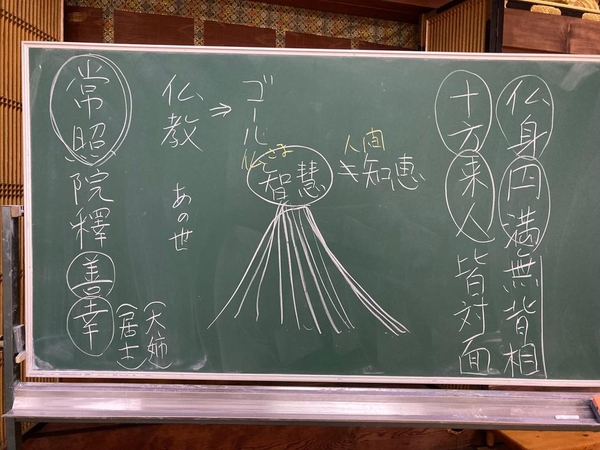 仏身円満無背相
十方来人皆対面
ゴール
仏さま
智慧
人間
≠知恵
仏教⇒
あのせ
常照院釋善幸
(大姉)
(居士)